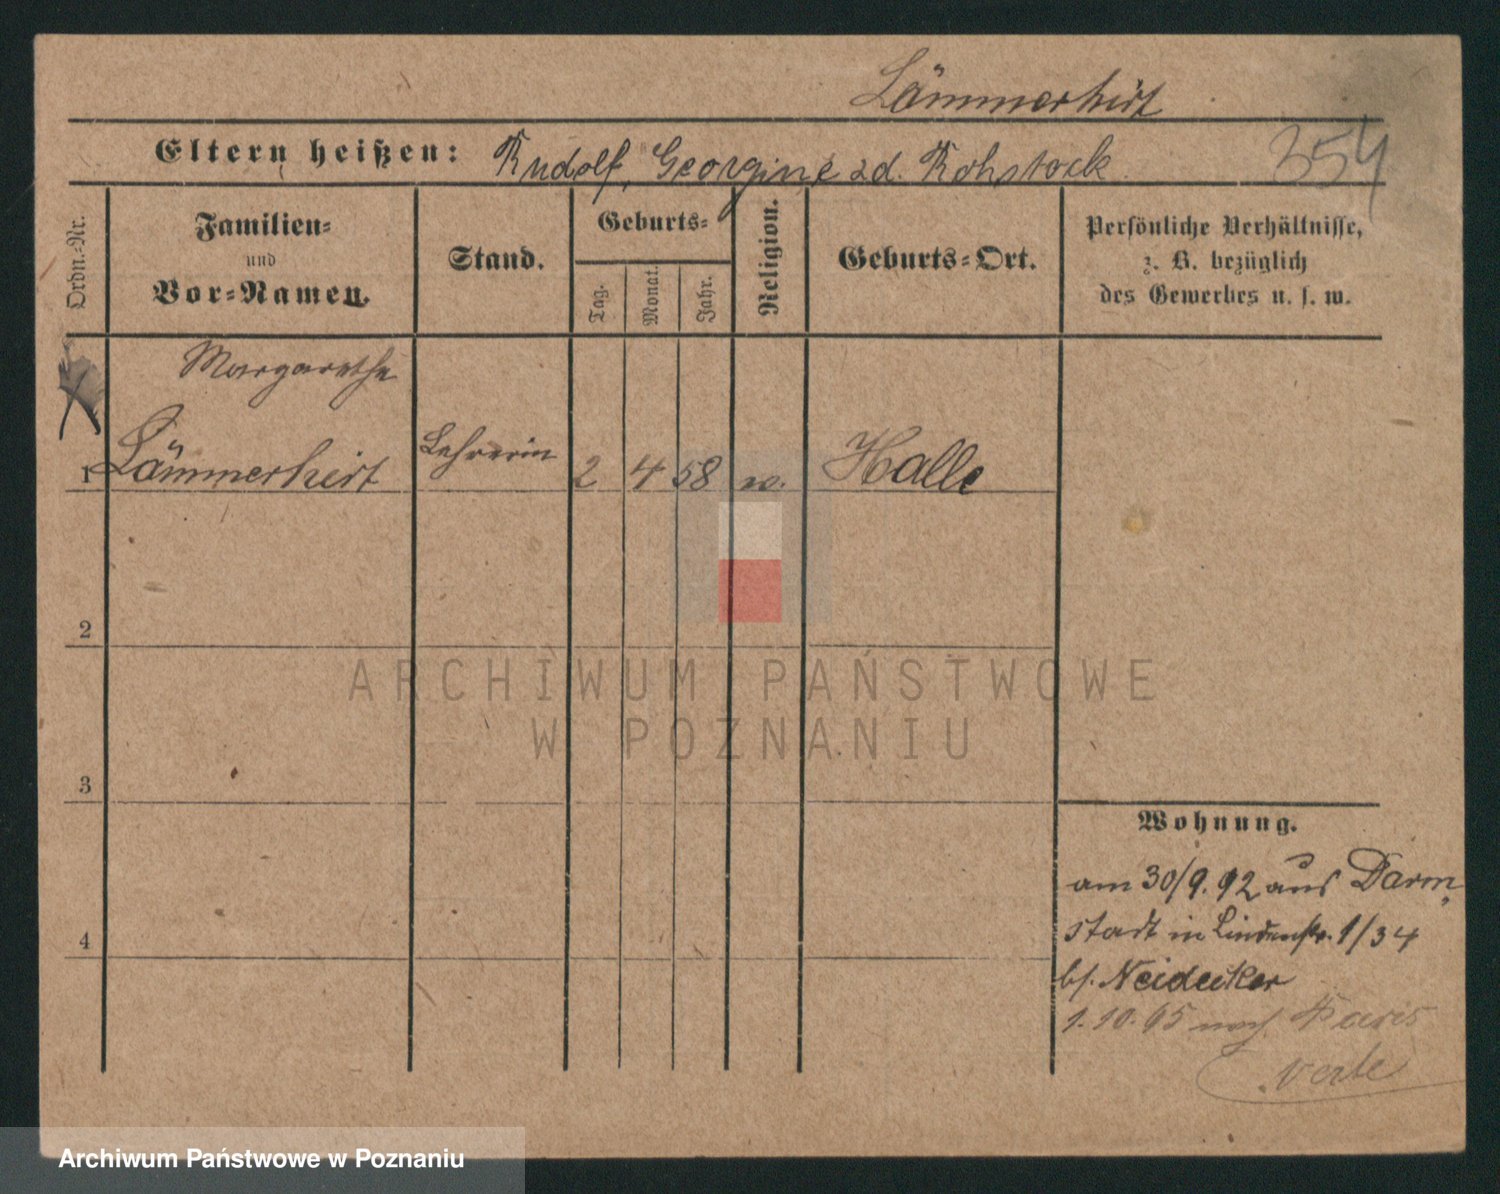 Lämmerhirt
Eltern heißen: Rudolf, Georgine
354
Ordn.-Nr.
Familien-
und
Vor-Namen.
Stand.
Geburts-
Tag.
Monat.
Jahr.
Religion.
Geburts-Ort.
Persönliche Verhältnisse,
z. B. bezüglich
des Gewerbes u. s. w.
Margarethe
1 Lämmerhirt Lehrerin 2 4 58 Halle
2
3
4
ARCHIWUM PAŃSTWOWE
W POZNANIU
Wohnung.
am 30/9. 92 aus Darm
stadt in Lindenstr. 1/34
bs. Neidecker
1.10.95 nach Paris
Archiwum Państwowe w Poznaniu